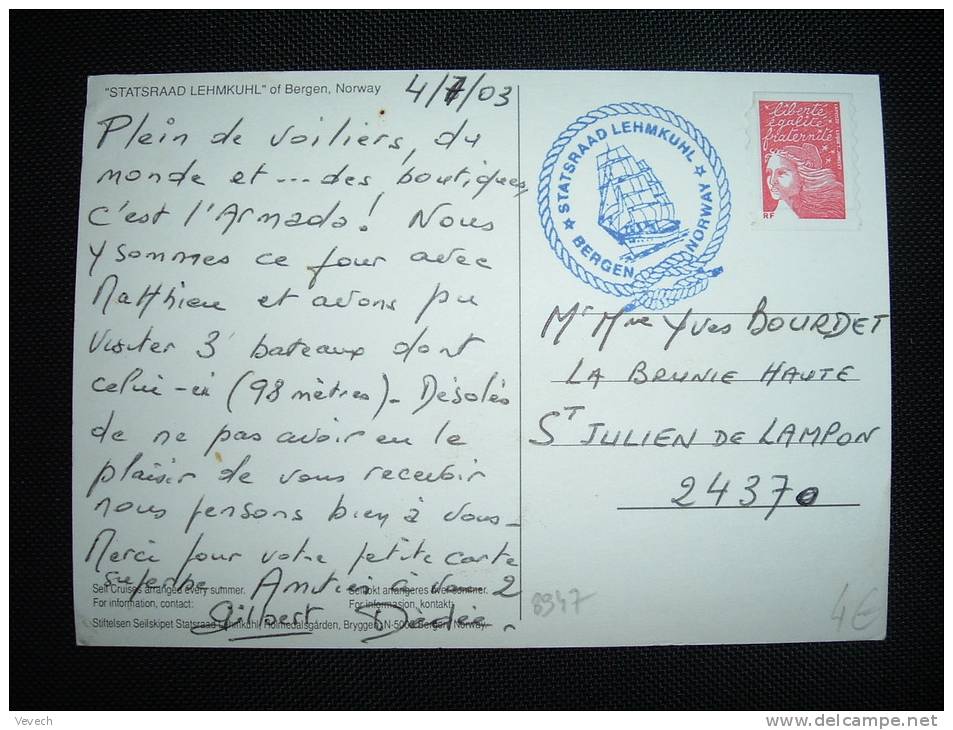 "STATSRAAD LEHMKUHL" of Bergen, Norway
4/7/03
Plein de voiliers, du
monde et ... des boutiques,
c'est l'Armada! Nous
y sommes ce jour avec
Matthieu et avons pu
visiter 3 bateaux dont
celui-ci (98 mètres)_ Désolés
de ne pas avoir eu le
plaisir de vous recevoir
nous pensons bien à vous_
Merci pour votre petite carte
superbe. Amitiés à vous 2
Gilbert Dédée.
Sail Cruises arranged every summer.
For information, contact:
Seiltokt arrangeres over sommer.
For informasjon, kontakt:
Stiftelsen Seilskipet Statsraad Lehmkuhl, Holmedalsgården, Bryggen, N-5003 Bergen, Norway.
STATSRAAD LEHMKUHL
BERGEN NORWAY
liberté
égalité
fraternité
RF
Mr Mme Yves BOURDET
LA BRUNIE HAUTE
ST JULIEN DE LAMPON
24370
8347
4€
Vevech
www.delcampe.net